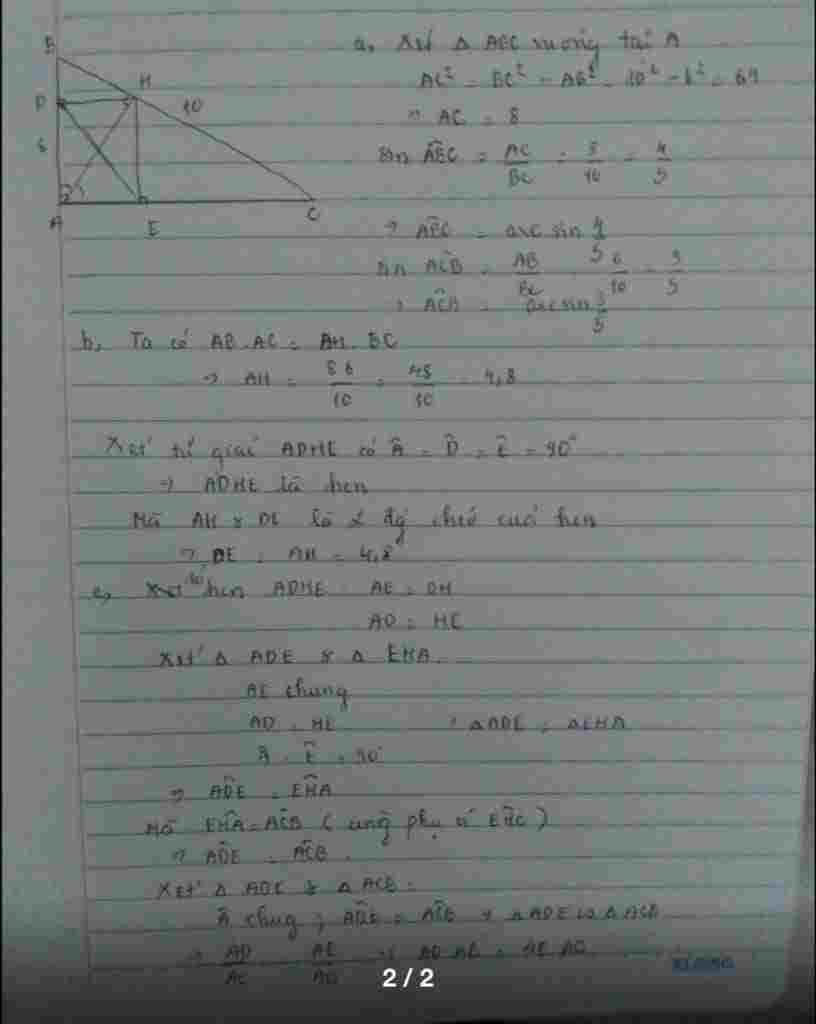 B
D
H
10
6
A
E
C
a, Xét Δ ABC vuông tại A
AC² = BC² - AB² = 10² - 6² = 64
⇒ AC = 8
sin ABC = AC/BC = 8/10 = 4/5
⇒ ABC = arc sin 4/5
sin ACB = AB/BC = 6/10 = 3/5
⇒ ACB = arcsin 3/5
b, Ta có AB.AC = AH.BC
⇒ AH = 8.6/10 = 48/10 = 4,8
Xét tứ giác ADHE có Â = D̂ = Ê = 90°
⇒ ADHE là hcn
Mà AH & DE là 2 đg chéo của hcn
⇒ DE = AH = 4,8
c, hcn ADHE AE = DH
AD = HE
Xét Δ ADE & Δ EHA.
AE chung
AD = HE ⇒ ΔADE = ΔEHA
Â = Ê = 90°
⇒ ADE = EHA
Mà EHA = ACB (cùng phụ EHC)
⇒ ADE = ACB.
Xét Δ ADE & Δ ACB.
Â chug; ADE = ACB ⇒ ΔADE ∽ ΔACB
⇒ AD/AC = AE/AB ⇒
2 / 2